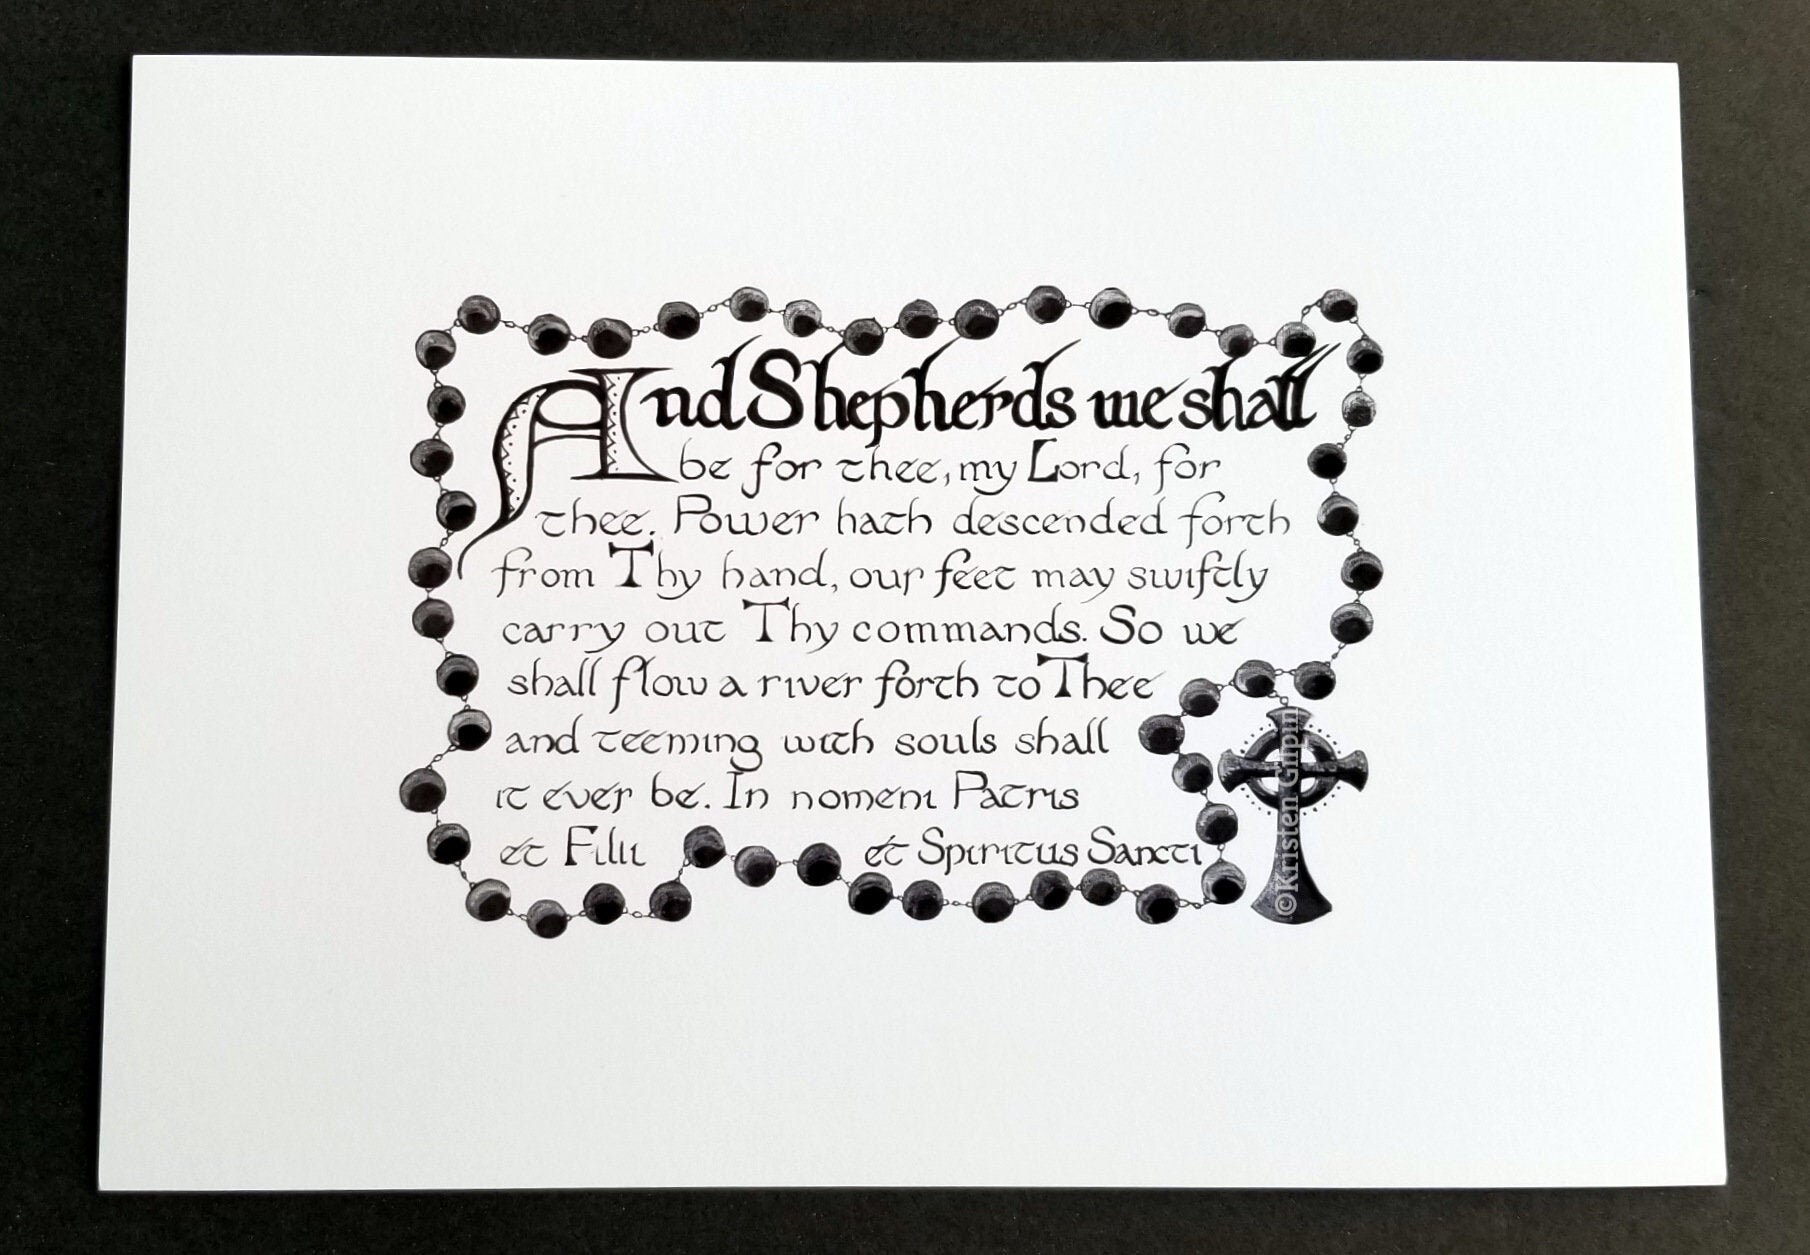 And Shepherds we shall
be for thee, my Lord, for
thee. Power hath descended forth
from Thy hand, our feet may swiftly
carry out Thy commands. So we
shall flow a river forth to Thee
and teeming with souls shall
it ever be. In nomeni Patris
et Filii et Spiritus Sancti
©Kristen Gilpin